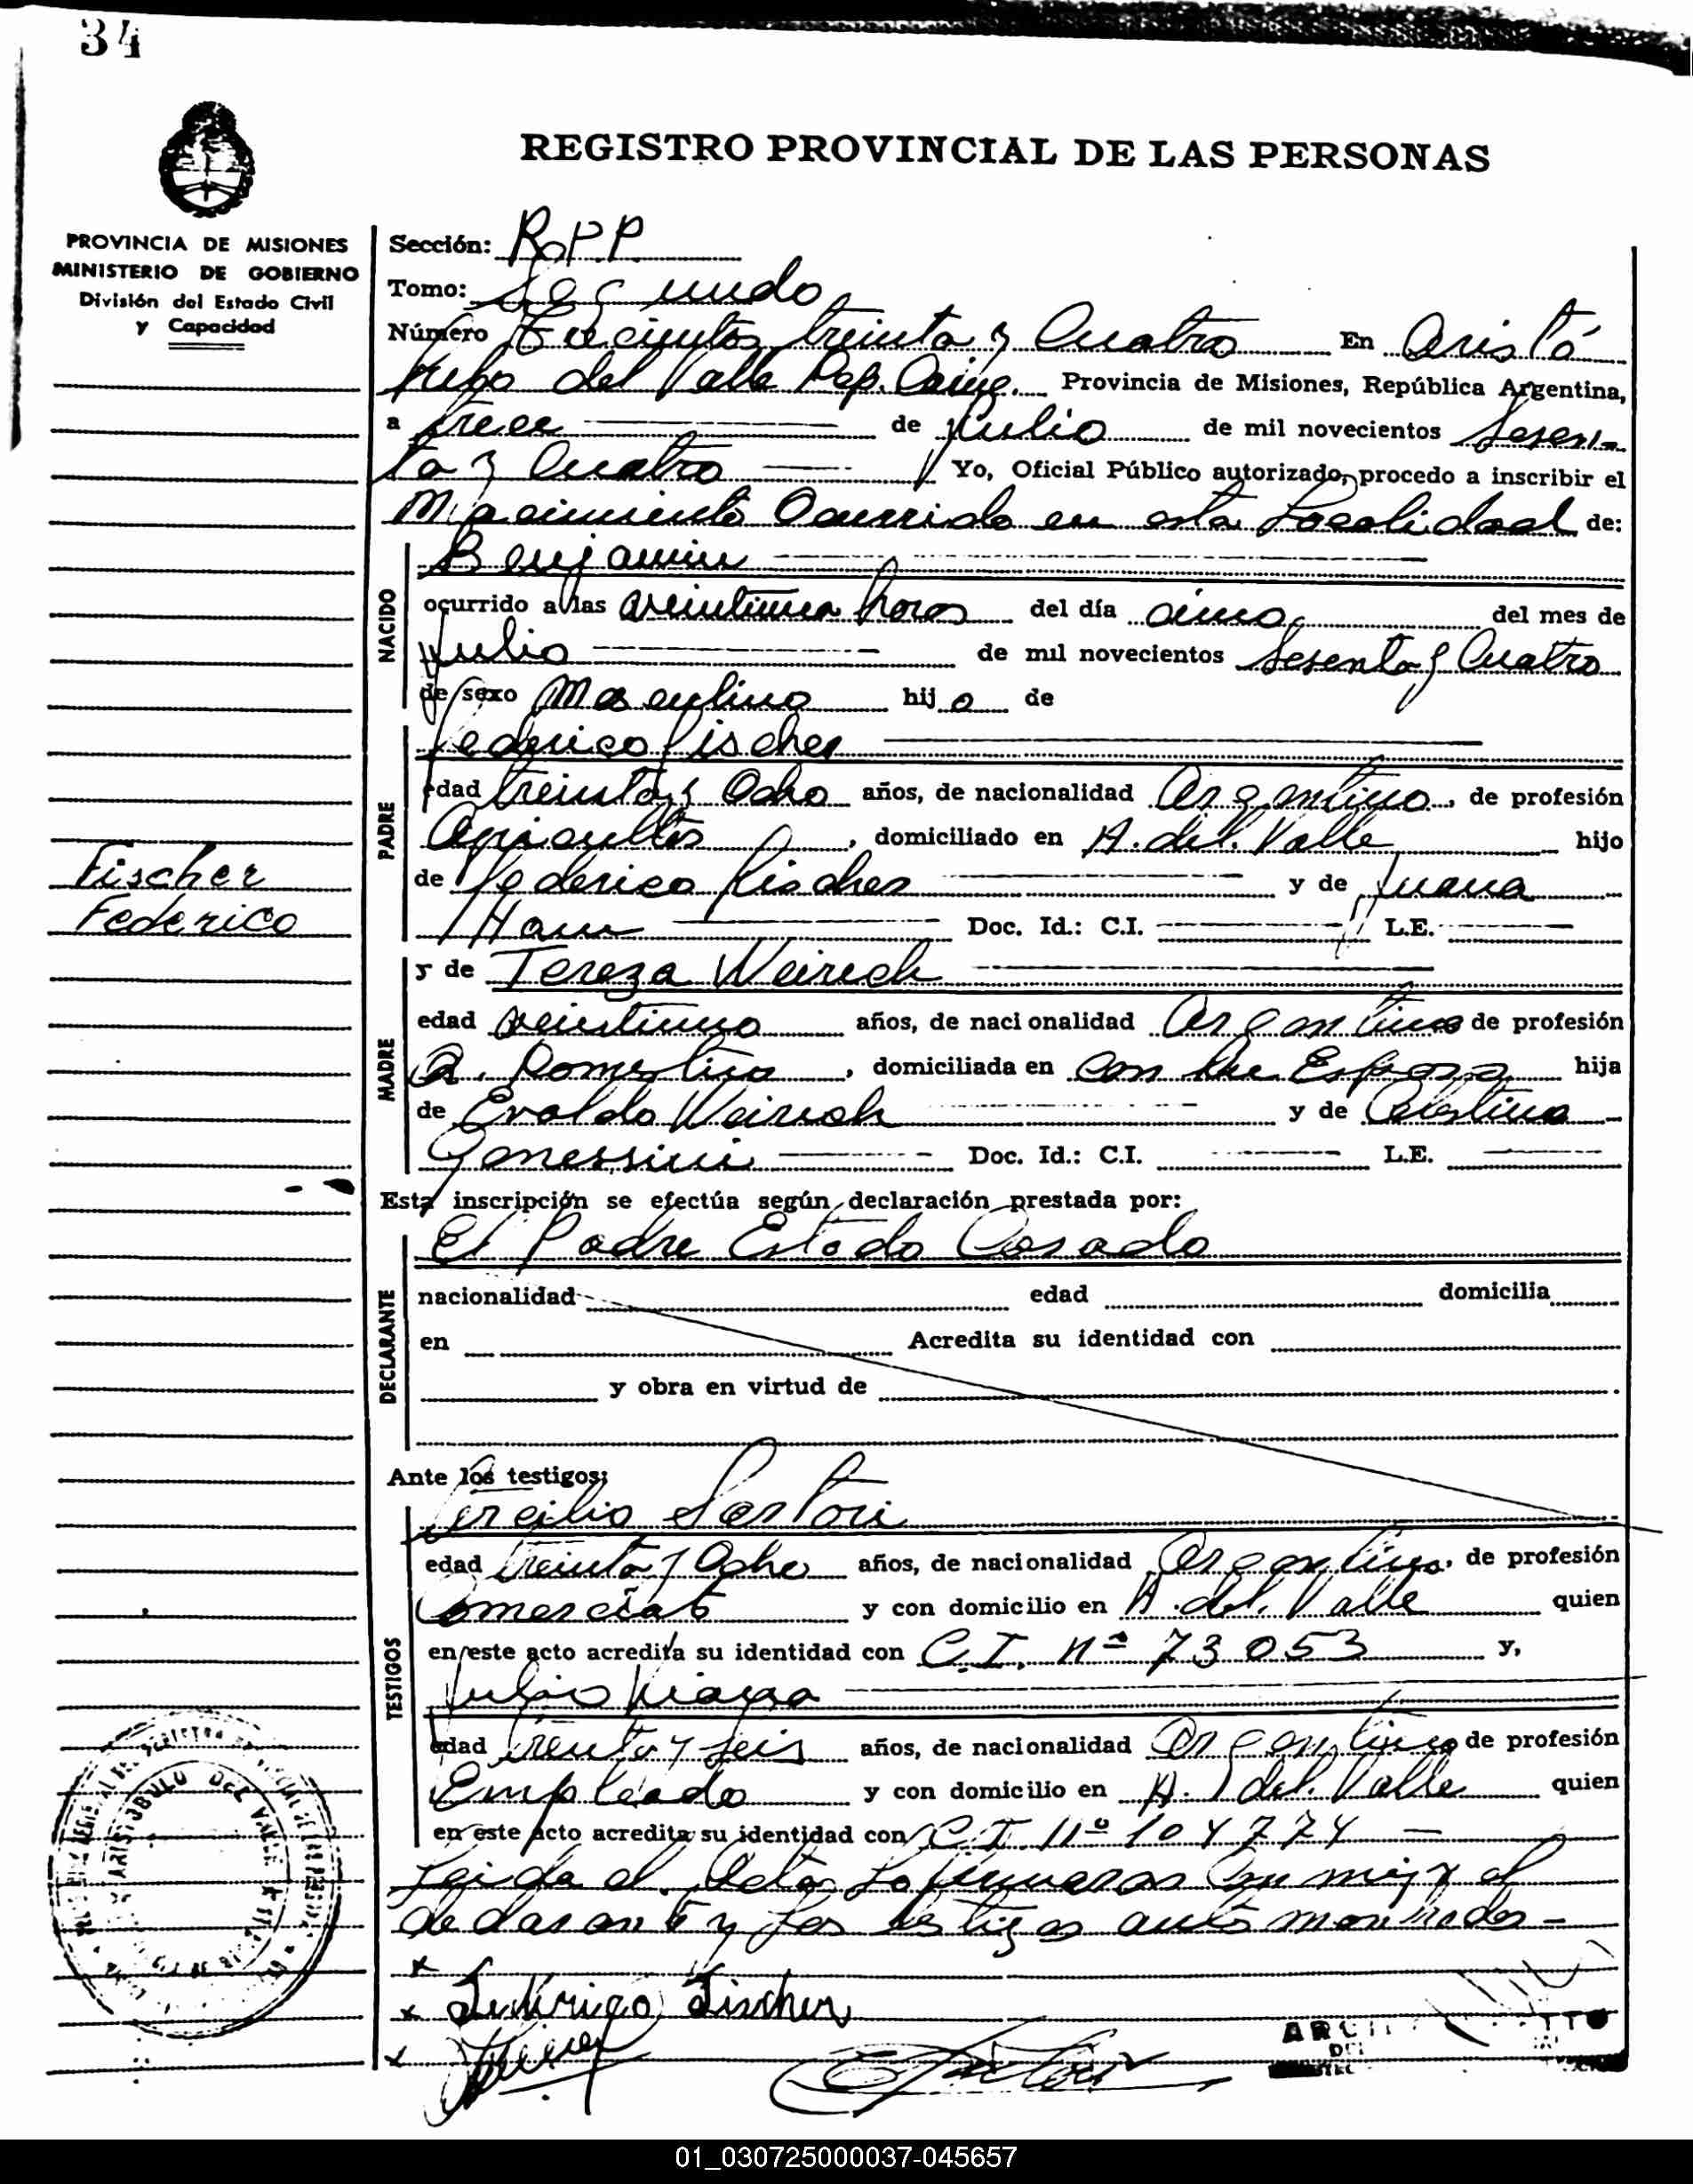 34
REGISTRO PROVINCIAL DE LAS PERSONAS
PROVINCIA DE MISIONES
MINISTERIO DE GOBIERNO
División del Estado Civil
y Capacidad
Fischer
Federico
Sección: R.P.P
Tomo: Segundo
Número Trecientos treinta y Cuatro En Aristó
bulo del Valle Dep. Caing. Provincia de Misiones, República Argentina,
a trece de Julio de mil novecientos Sesen-
ta y Cuatro Yo, Oficial Público autorizado, procedo a inscribir el
Nacimiento Ocurrido en esta Localidad de:
NACIDO
Benjamin
ocurrido a las veintiuna horas del día cinco del mes de
Julio de mil novecientos Sesenta y Cuatro
de sexo Masculino hijo de
PADRE
Federico Fischer
edad treinta y Ocho años, de nacionalidad Argentino, de profesión
Agricultor, domiciliado en A. del Valle hijo
de Federico Fischer y de Juana
Doc. Id.: C.I. L.E.
MADRE
y de Tereza Weirich
edad veintiuno años, de nacionalidad Argentina de profesión
Q. Domestica, domiciliada en con su Esposo hija
de Evaldo Weirich y de Celestina
Doc. Id.: C.I. L.E.
Esta inscripción se efectúa según declaración prestada por:
DECLARANTE
El Padre Estado Casado
nacionalidad edad domicilia
en Acredita su identidad con
y obra en virtud de
Ante los testigos:
TESTIGOS
Sartori
edad treinta y Ocho años, de nacionalidad Argentino, de profesión
y con domicilio en A. del Valle quien
en este acto acredita su identidad con C.I. Nº 73053 y,
Julio
edad treinta y seis años, de nacionalidad Argentino de profesión
Empleado y con domicilio en A. del Valle quien
en este acto acredita su identidad con C.I. Nº 104774
Leida el Acta La firmaron Con migo el
declarante y los testigos antes
Federico Fischer
ARISTOBULO DEL VALLE
01_030725000037-045657